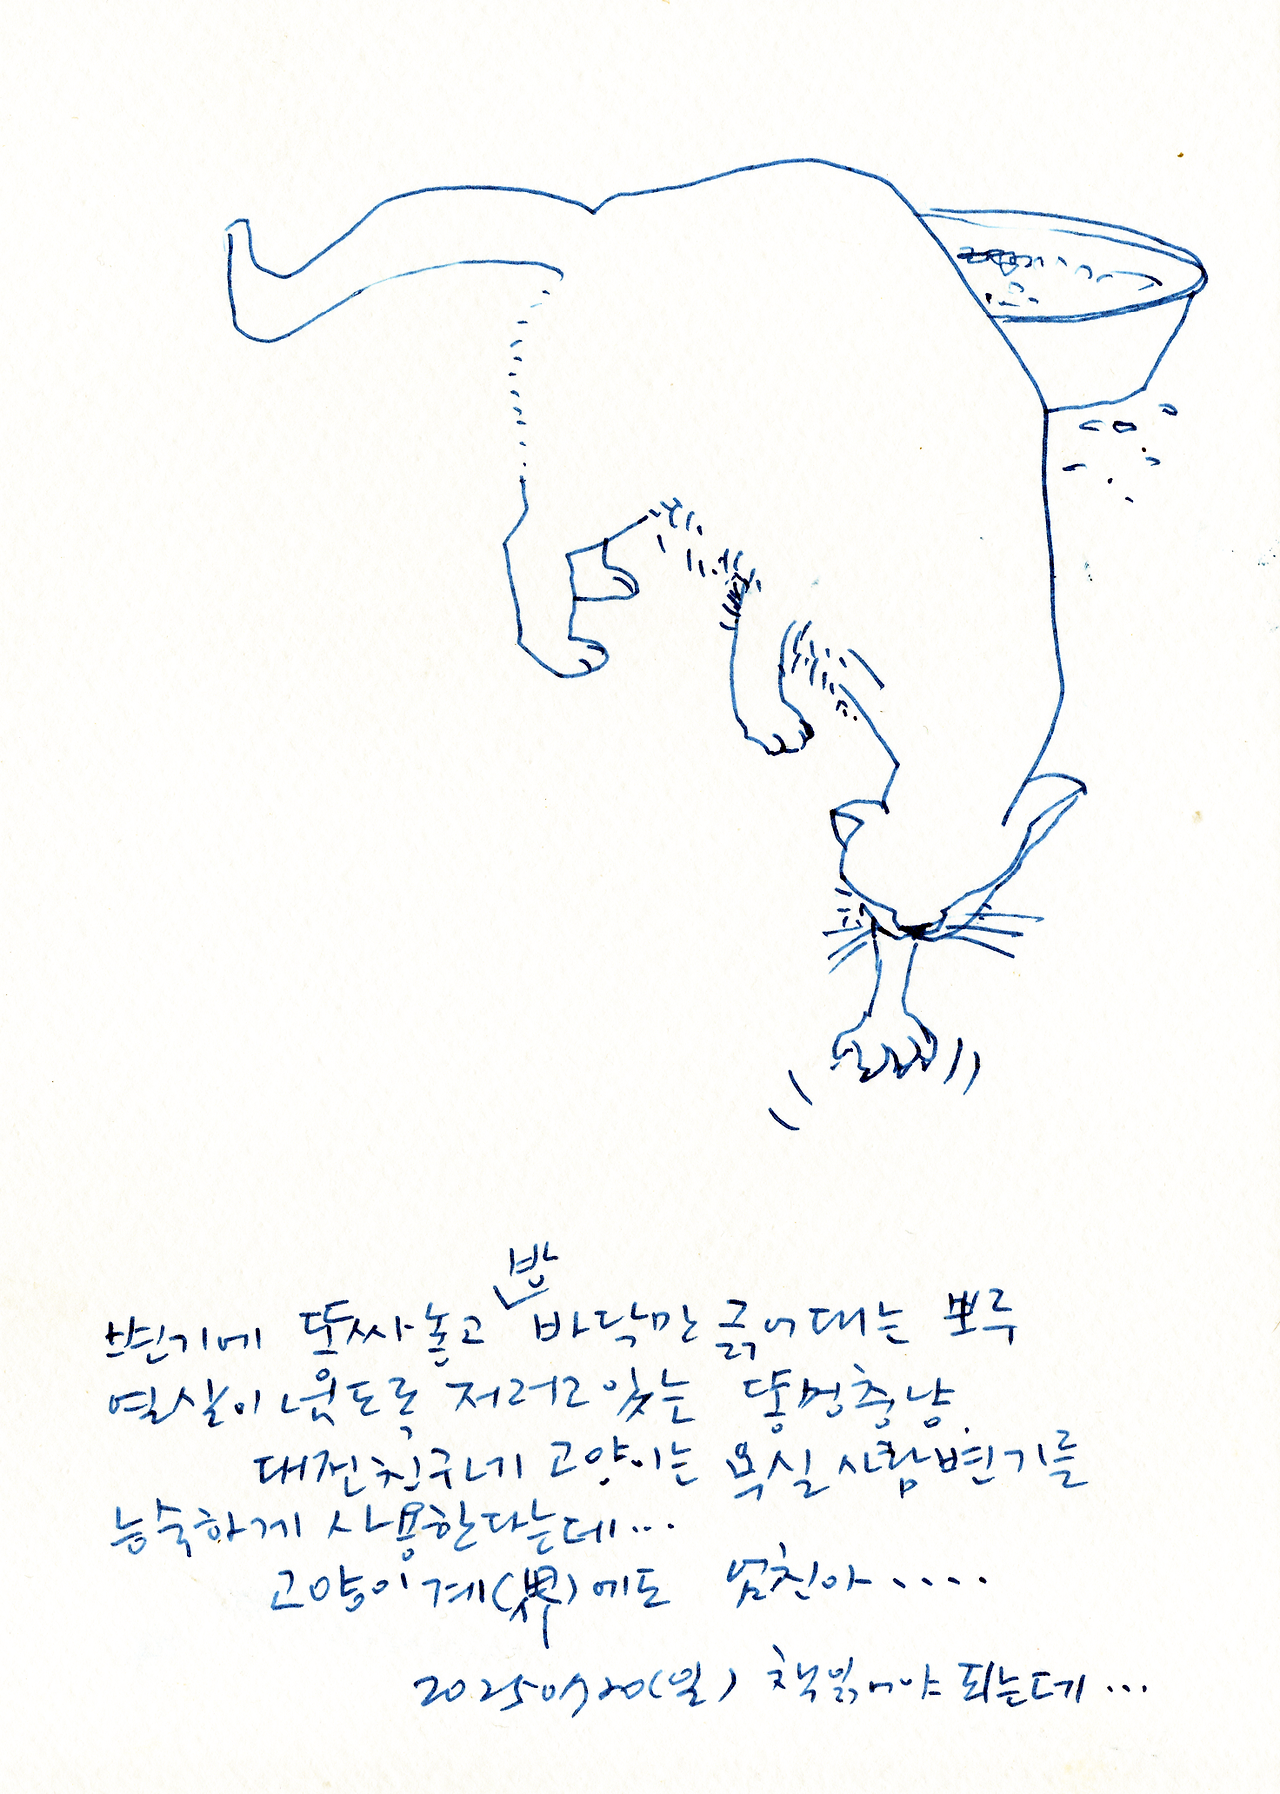 변기에 똥싸놓고 방바닥만 긁어대는 뽀루
열살이 넘도록 저러고 있는 똥멍충냥.
대전친구네 고양이는 욕실 사람변기를
능숙하게 사용한다는데...
고양이계(界)에도 엄친아....
20250720(일) 책읽어야 되는데...